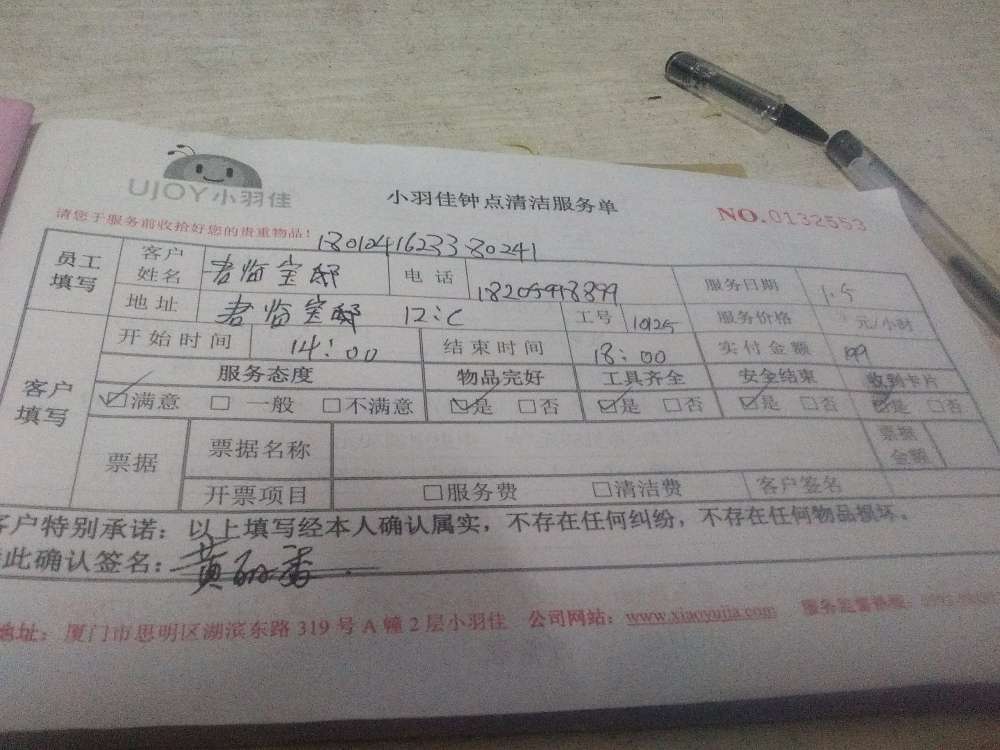 UJOY小羽佳
小羽佳钟点清洁服务单
NO.0132553
请您于服务前收拾好您的贵重物品!
1801241623380241
员工填写 客户姓名 君临宝邸 电话 18205998899 服务日期 1.5
地址 君临宝邸 12:C 工号 10125 服务价格 元/小时
客户填写 开始时间 14:00 结束时间 18:00 实付金额 199
服务态度 物品完好 工具齐全 安全结束 收到卡片
☑满意 □一般 □不满意 ☑是 □否 ☑是 □否 ☑是 □否 ☑是 □否
票据 票据名称 票据金额
开票项目 □服务费 □清洁费 客户签名
客户特别承诺：以上填写经本人确认属实，不存在任何纠纷，不存在任何物品损坏。
此确认签名：黄丽香
地址：厦门市思明区湖滨东路319号A幢2层小羽佳 公司网站：www.xiaoyujia.com 服务监督热线：